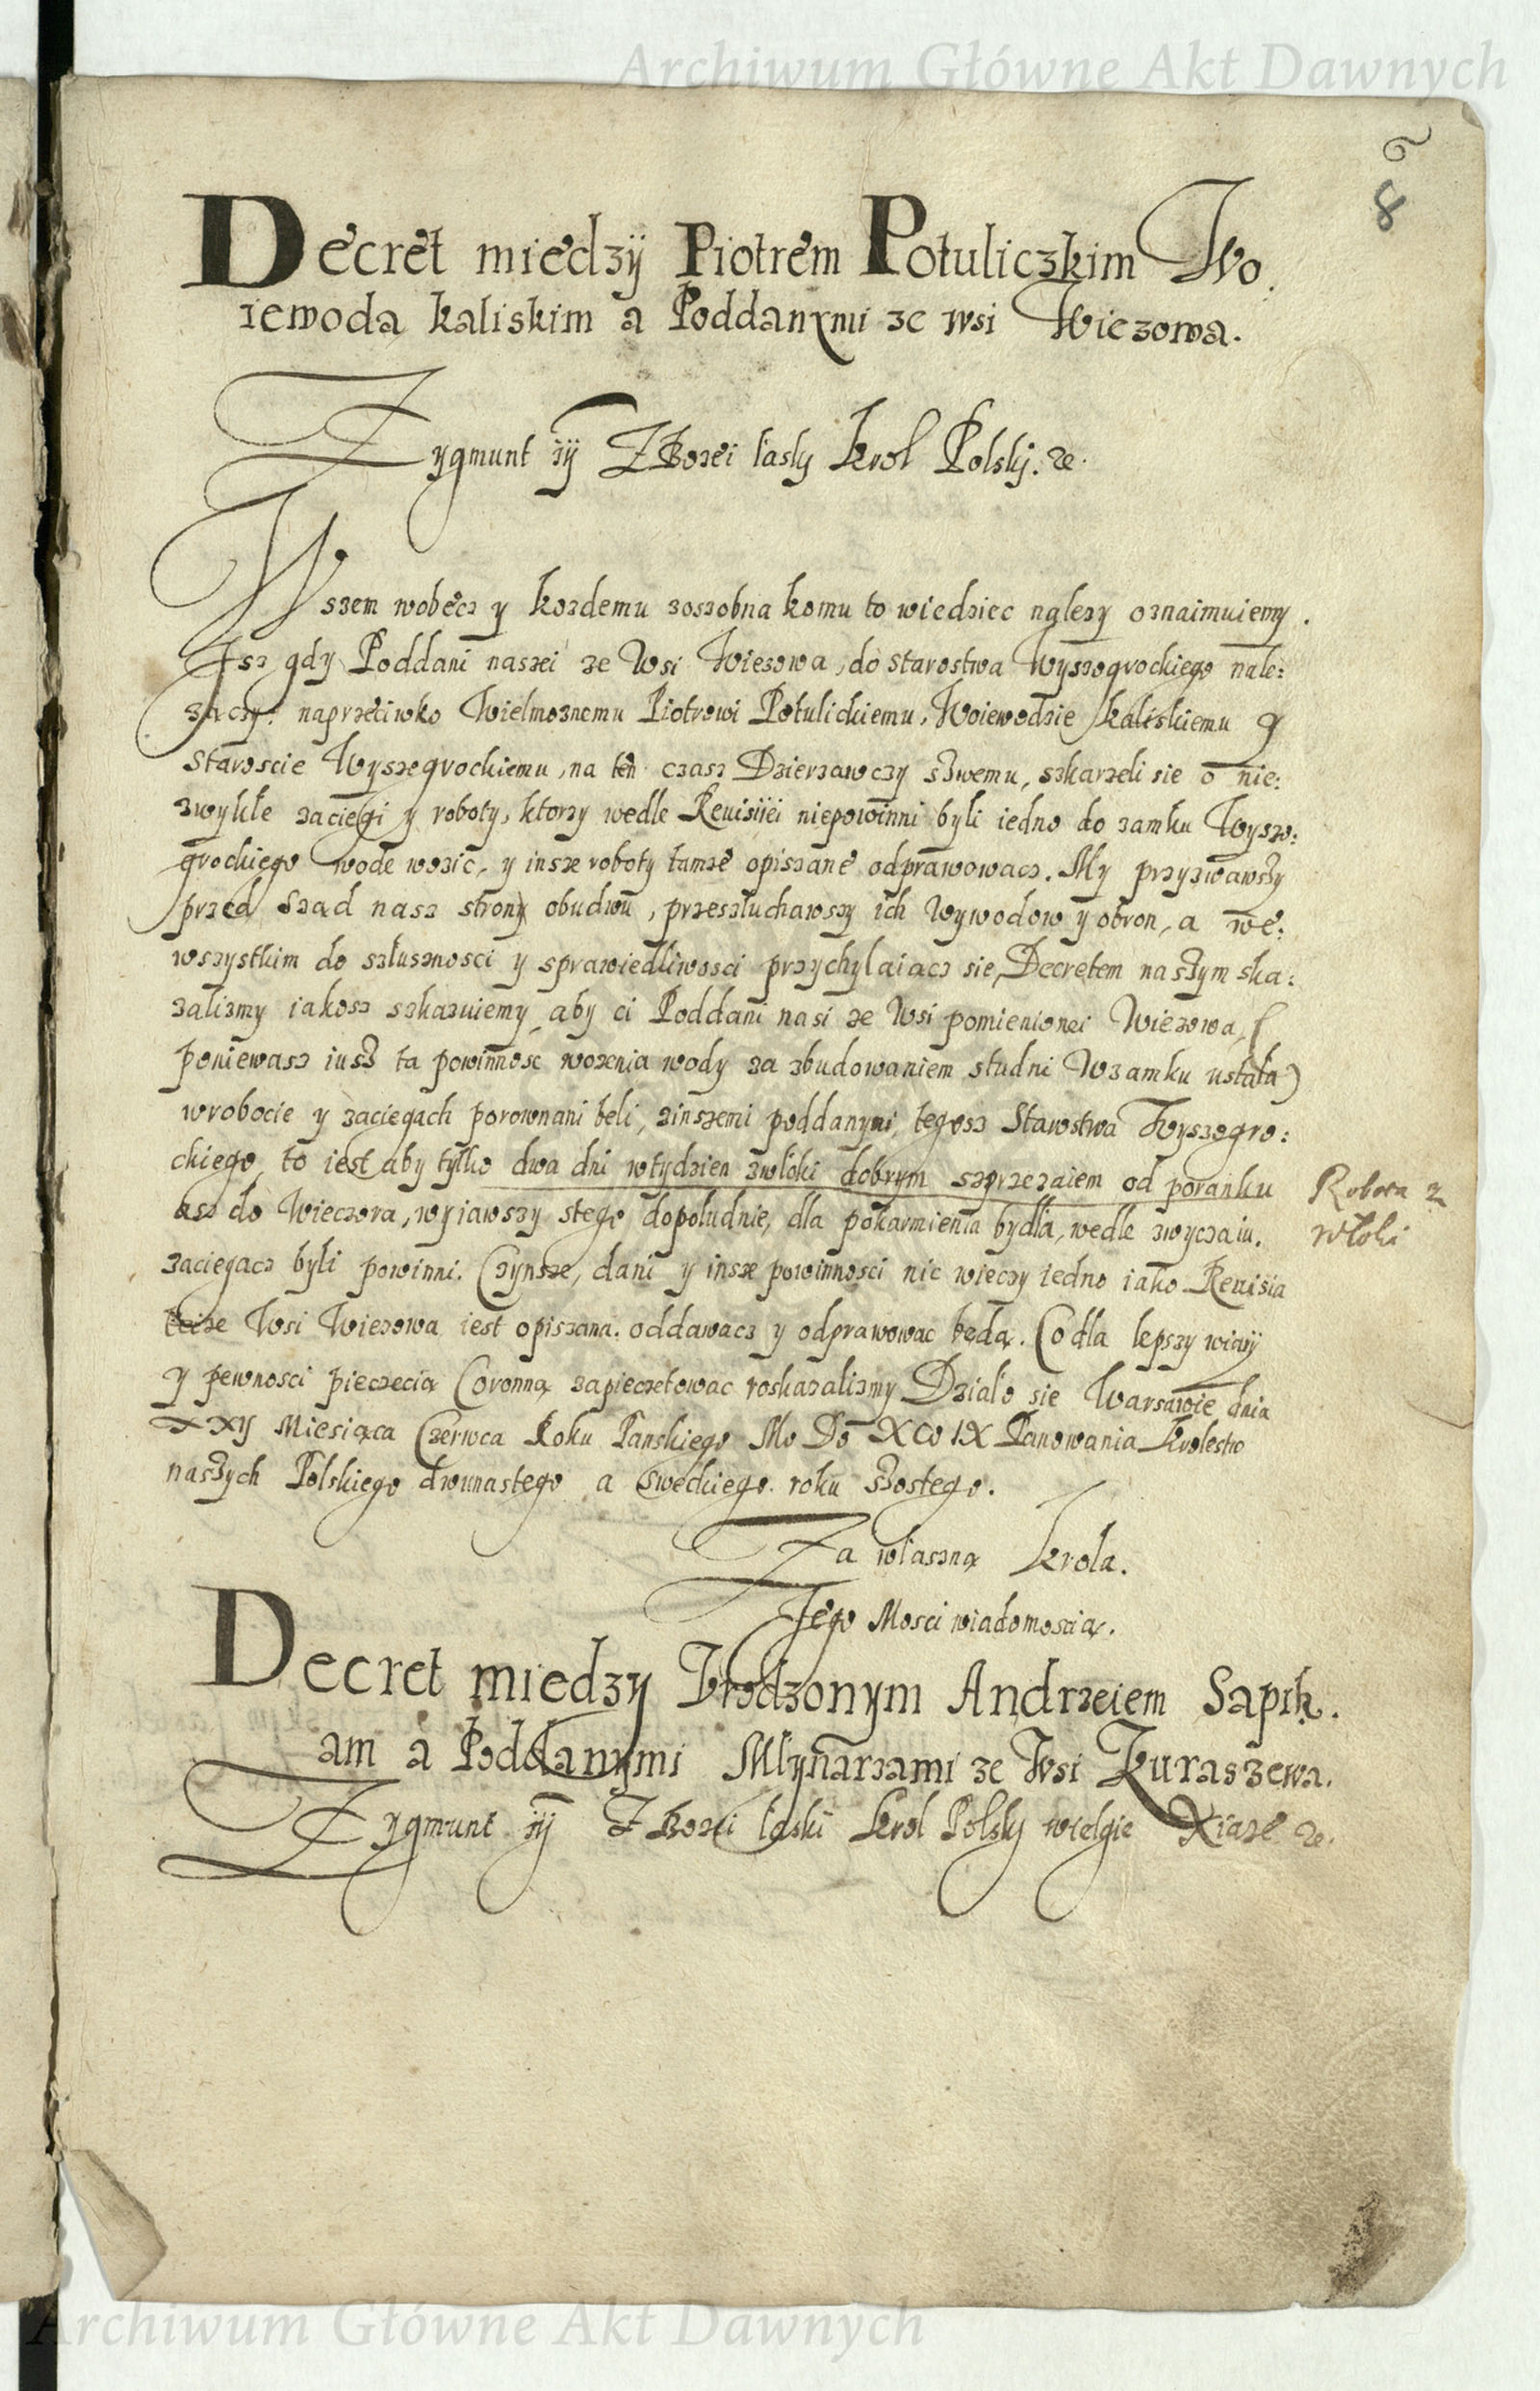 Archiwum Główne Akt Dawnych
6
8
Decret miedzÿ Piotrem Potuliczkim Wo
iewoda kaliskim a Poddanymi ze wsi Wiezowa.
Zygmunt iÿ Z Bozei lasky krol Polsky. &c.
Wszem wobecz y kozdemu zoszobna komu to wiedziec nglezy oznaimuiemy.
Isz gdy Poddani naszei ze Wsi Wiezowa, do starostwa Wyszogrockiego nale:
zaczy: naprzeciwko Wielmoznemu Piotrowi Potulickiemu, Woiewodzie kaliskiemu y
staroscie Wyszegrockiemu, na ten czasz Dzierzawczy szwemu, szkarzeli sie o nie:
zwykłe zaciegi y roboty, ktorzy wedle Reuisiiei niepowinni byli iedno do zamku Wyszo:
grockiego wode wozic, y insze roboty tamze opiszane odprawowacz. My przyzwawszy
przed Szad nasz strony obudwu, przeszłuchawszy ich Wywodow y obron, a we:
wszystkim do szlusznosci y sprawiedliwosci przychylaiacz sie, Decretem naszym ska:
zalizmy iakosz szkazuiemy, aby ci Poddani nasi ze Wsi pomienionei Wiezowa, (
poniewasz iusz ta powinnosc wozenia wody za zbudowaniem studni Wzamku ustała)
wrobocie y zaciegach porownani beli, zinszemi poddanymi, tegosz Starostwa Wyszogro:
ckiego, to iest aby tylko dwa dni wtydzien zwloki dobrym szprzezaiem od poranku
asz do Wieczora, wyiawszy stego dopoludnie, dla pokarmienia bydla, wedle zwyczaiu.
Robota z
wloki
zaciegacz byli powinni. Czynsze, dani y insze powinnosci nic wieczy iedno iako Reuisia
teize Wsi Wiezowa iest opiszana. oddawacz y odprawowac będą. Co dla lepszy wiarÿ
y pewnosci pieczecią Coronną zapieczetowac roskazalizmy Dzialo sie Warsawie dnia
XXII Miesiąca Czerwca Roku Panskiego Mo Do XCoIX Panowania krolestw
naszych Polskiego dwunastego a swedkiego. roku szostego.
Za wlaszną krola.
Jego Mosci wiadomoscią.
Decret miedzy Urodzonym Andrzeiem Sapih.
am a Poddanymi Młynarzami ze Wsi Kuraszewa.
Zygmunt iÿ Z Bozei laski krol Polsky wielgie Xiaze &c.
Archiwum Główne Akt Dawnych